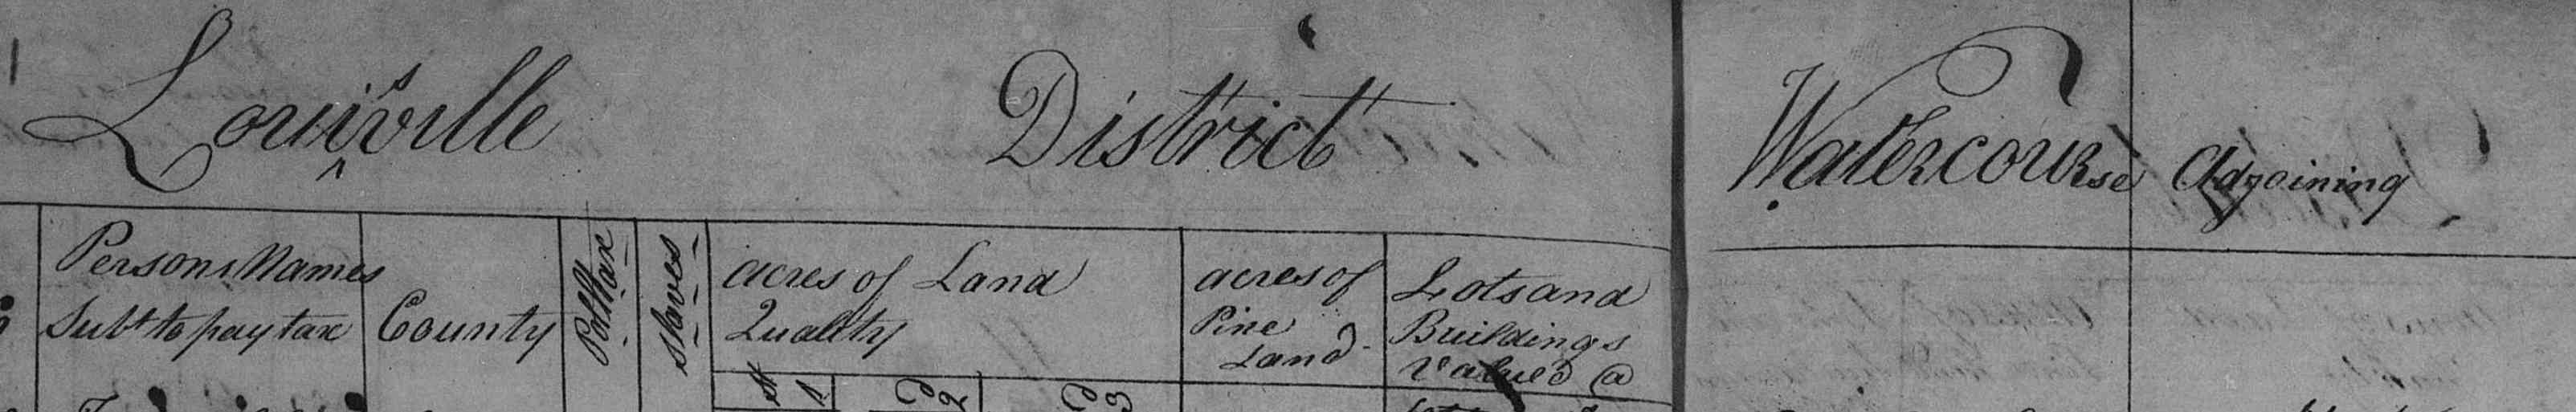 Louisville District Watercourse Adjoining
Persons Names
Subt to pay tax
County
Poll tax
Slaves
acres of Land
Quality
1st
2d
3d
acres of
Pine
Land
Lots and
Buildings
Valued @